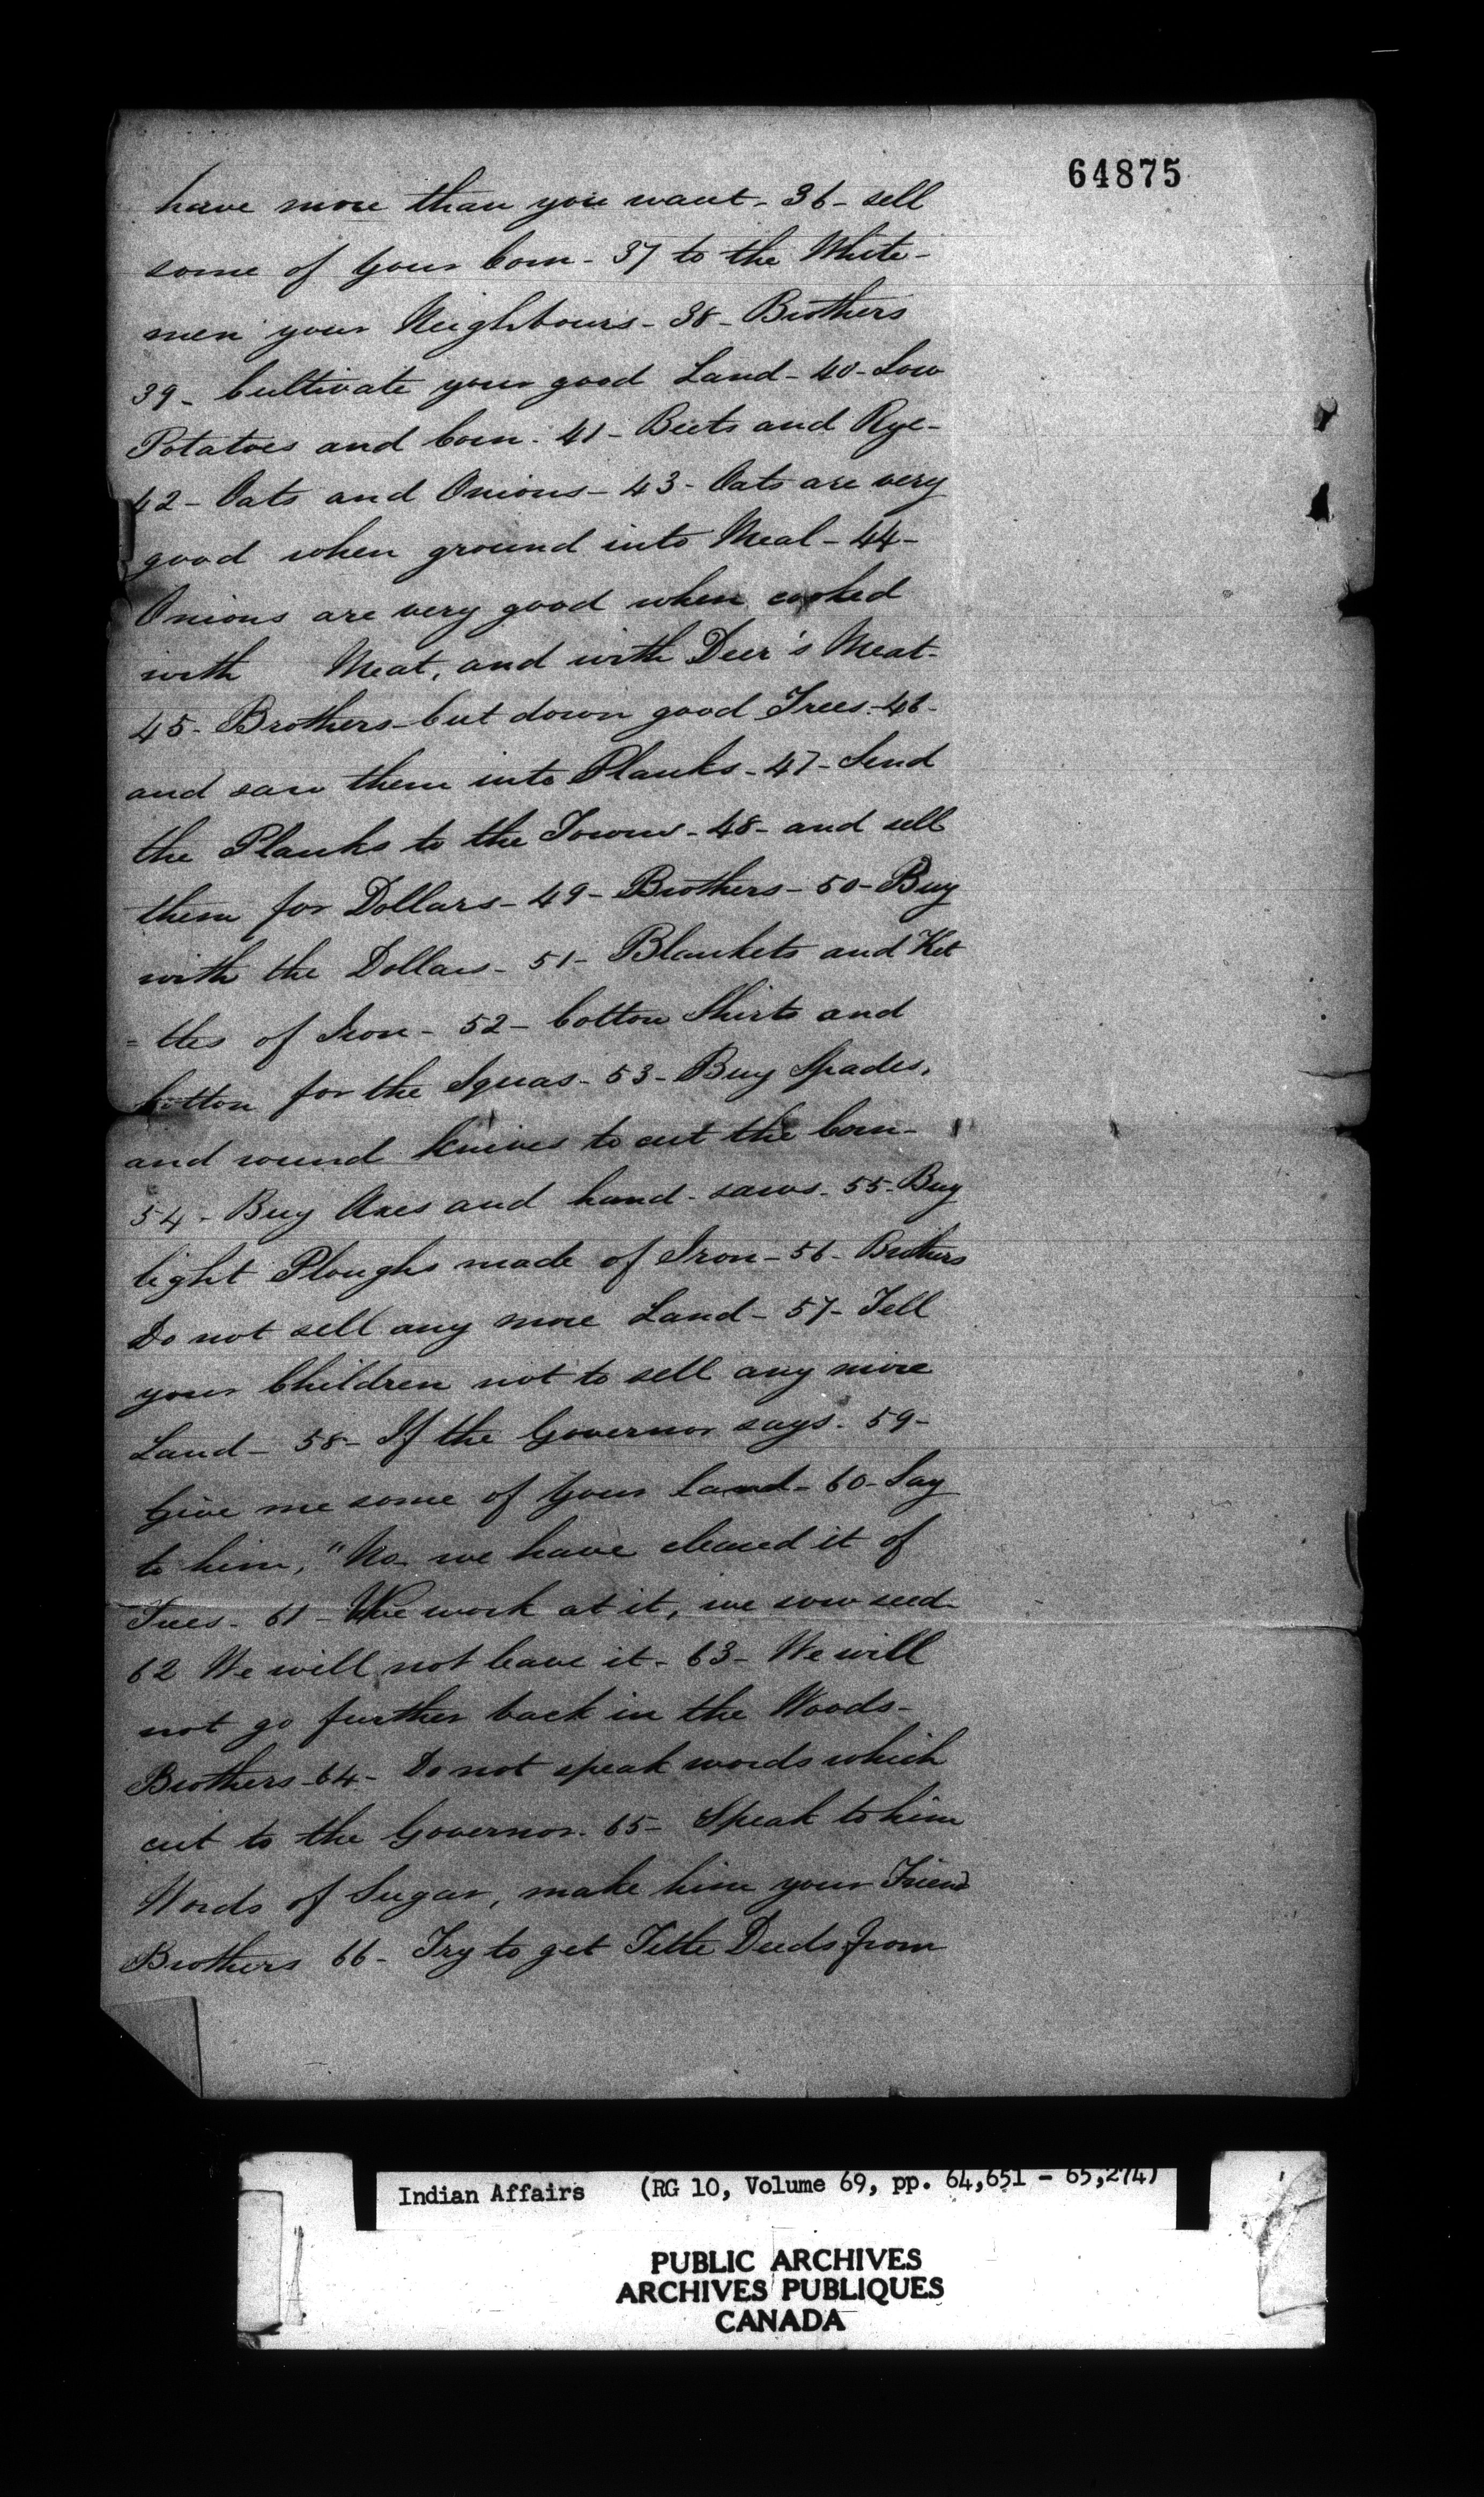 64875
have more than you want - 36 - sell
some of your Corn - 37 to the White-
men your Neighbours - 38 - Brothers
39 - Cultivate your good Land - 40 - Sow
Potatoes and Corn - 41 - Beets and Rye -
42 - Oats and Onions - 43 - Oats are very
good when ground into Meal - 44 -
Onions are very good when cooked
with Meat, and with Deer's Meat -
45 - Brothers - Cut down good Trees - 46 -
and saw them into Planks - 47 - Send
the Planks to the Towns - 48 - and sell
them for Dollars - 49 - Brothers - 50 - Buy
with the Dollars - 51 - Blankets and Ket
= tles of Iron - 52 - Cotton Shirts and
Cotton for the Squas - 53 - Buy Spades,
and round knives to cut the Corn -
54 - Buy Axes and hand - saws - 55 - Buy
light Ploughs made of Iron - 56 - Brothers
Do not sell any more Land - 57 - Tell
your Children not to sell any more
Land - 58 - If the Governor says - 59 -
Give me some of your land - 60 - Say
to him, "No we have cleared it of
Trees - 61 - We work at it, we sow seed -
62 We will not leave it - 63 - We will
not go further back in the Woods -
Brothers - 64 - Do not speak words which
cut to the Governor - 65 - Speak to him
Words of Sugar, make him your Friend
Brothers 66 - Try to get Title Deeds from
Indian Affairs (RG 10, Volume 69, pp. 64,651 - 65,274)
PUBLIC ARCHIVES
ARCHIVES PUBLIQUES
CANADA